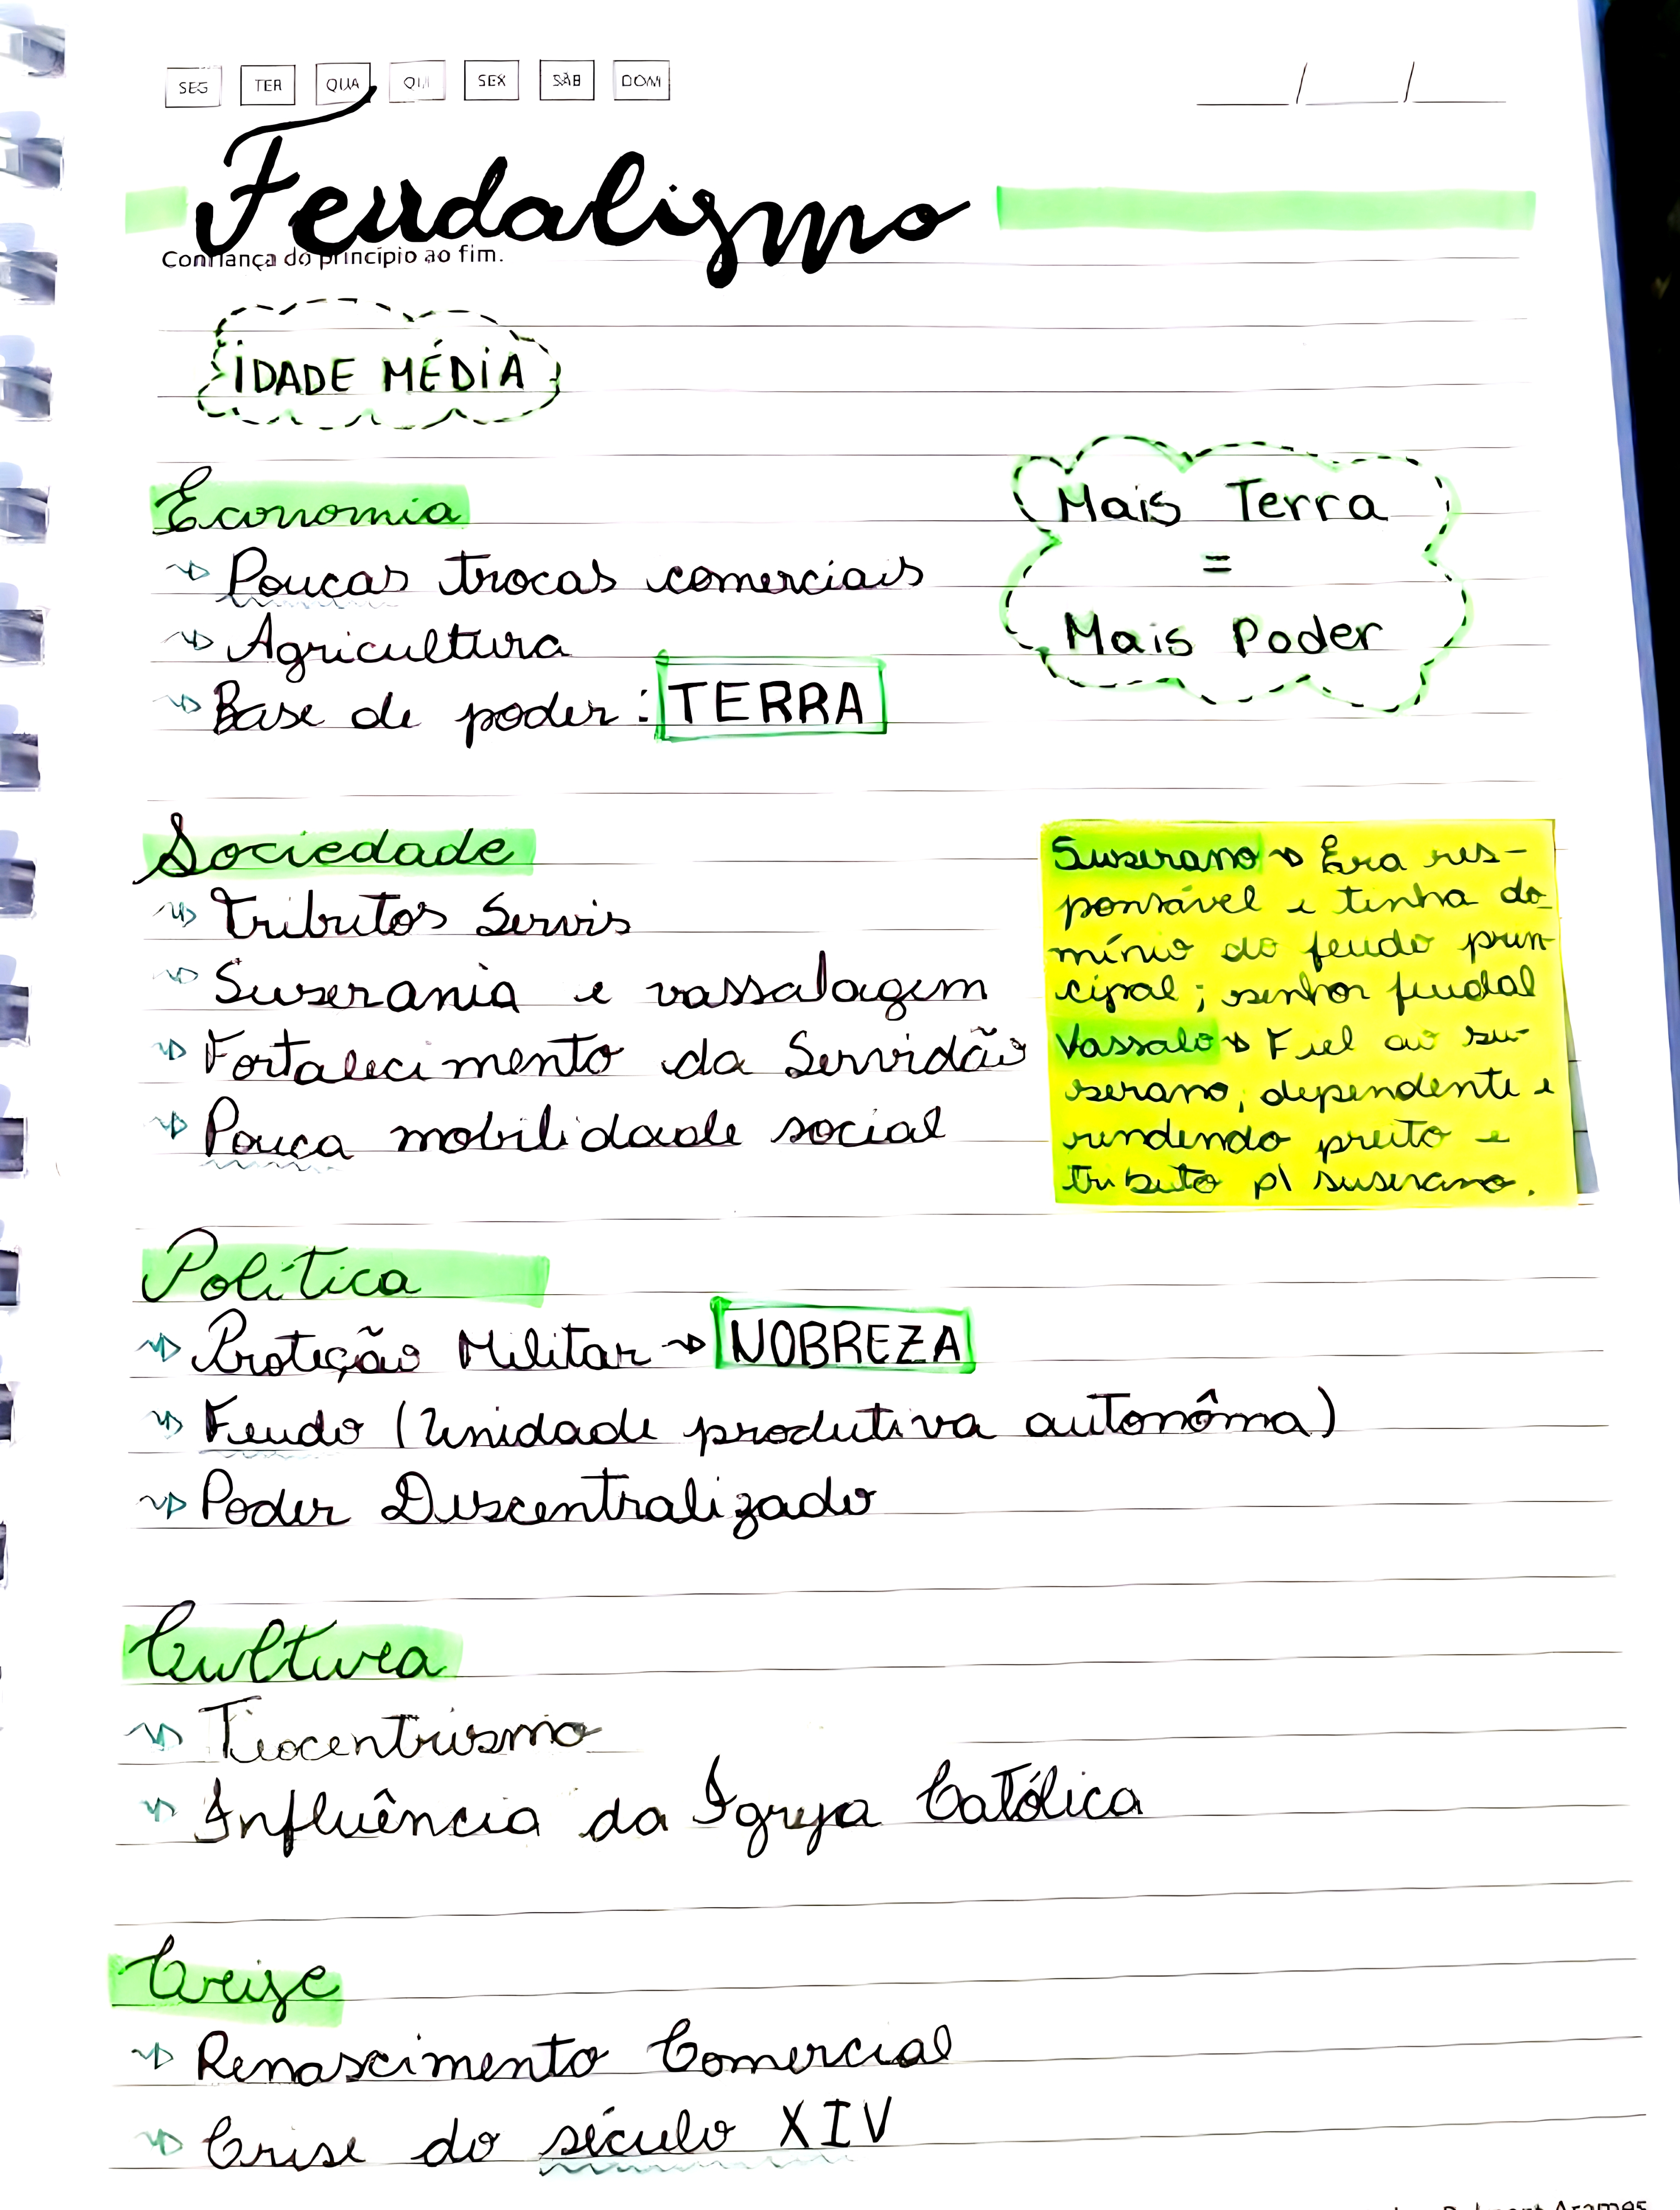 SEG TER QUA QUI SEX SÁB DOM
Feudalismo
Confiança do princípio ao fim.
IDADE MÉDIA
Economia
Poucas trocas comerciais
Agricultura
Base de poder: TERRA
Mais Terra
=
Mais Poder
Sociedade
Tributos Servis
Suserania e vassalagem
Fortalecimento da Servidão
Pouca mobilidade social
Suserano → Era res-
ponsável e tinha do
mínio do feudo prin-
cipal; senhor feudal
Vassalo → Fiel ao su-
serano, dependente e
rendendo preito e
tributo p\ suserano.
Política
Proteção Militar → NOBREZA
Feudo (Unidade produtiva autonôma)
Poder Descentralizado
Cultura
Teocentrismo
Influência da Igreja Católica
Crise
Renascimento Comercial
Crise do século XIV